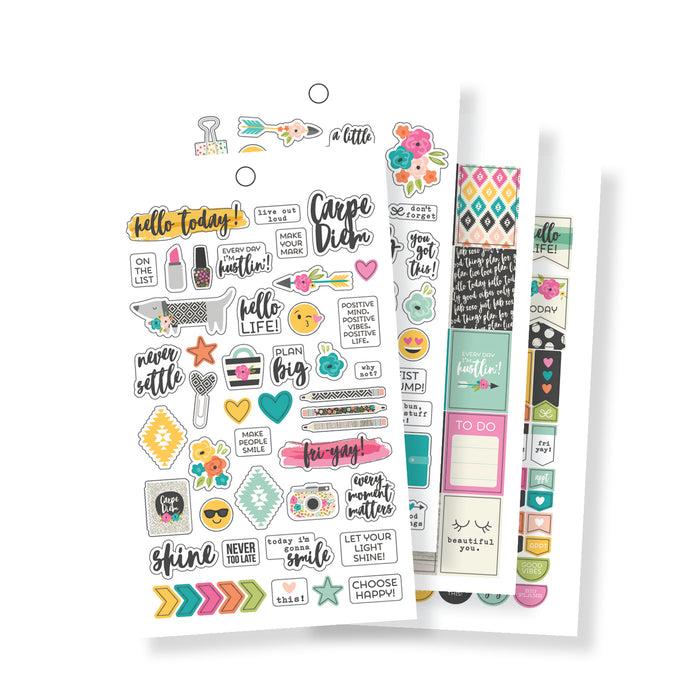 a little
don't
forget
hello today!
live out
loud
Carpe
Diem
MAKE
YOUR
MARK
you
got
this!
ON
THE
LIST
EVERY DAY
I'M
hustlin'!
hello
LIFE!
POSITIVE
MIND.
POSITIVE
VIBES.
POSITIVE
LIFE.
never
settle
PLAN
big
why
not?
MAKE
PEOPLE
SMILE
fri-yay!
Carpe
Diem
every
moment
matters
shine
NEVER
TOO LATE
today i'm
gonna
smile
LET YOUR
LIGHT
SHINE!
this!
CHOOSE
HAPPY!
EVERY DAY
I'M
hustlin'!
TO DO
beautiful
you.
LIFE!
TODAY
fri
yay!
appt
GOOD
VIBES
BIG
PLANS